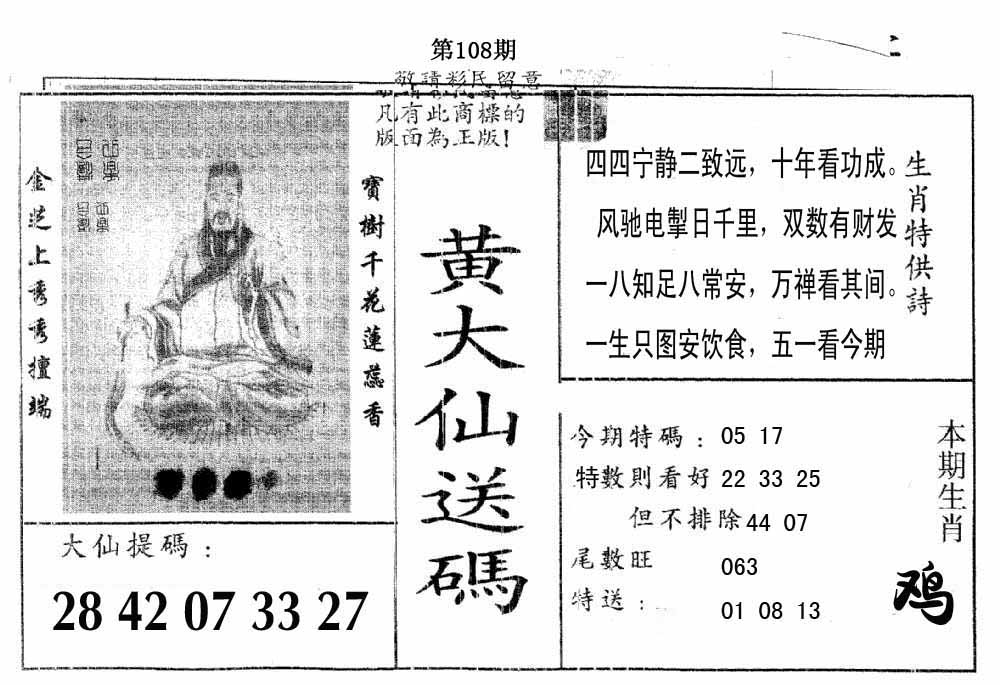 第108期
敬請彩民留意
凡有此商標的
版面為正版!
金芝上秀秀擅端
寶樹千花蓮蕊香
大仙提碼：
28 42 07 33 27
黃大仙送碼
生肖特供詩
四四宁静二致远，十年看功成。
风驰电掣日千里，双数有财发
一八知足八常安，万禅看其间。
一生只图安饮食，五一看今期
今期特碼：05 17
特數則看好 22 33 25
但不排除 44 07
尾數旺 063
特送：01 08 13
本期生肖
鸡